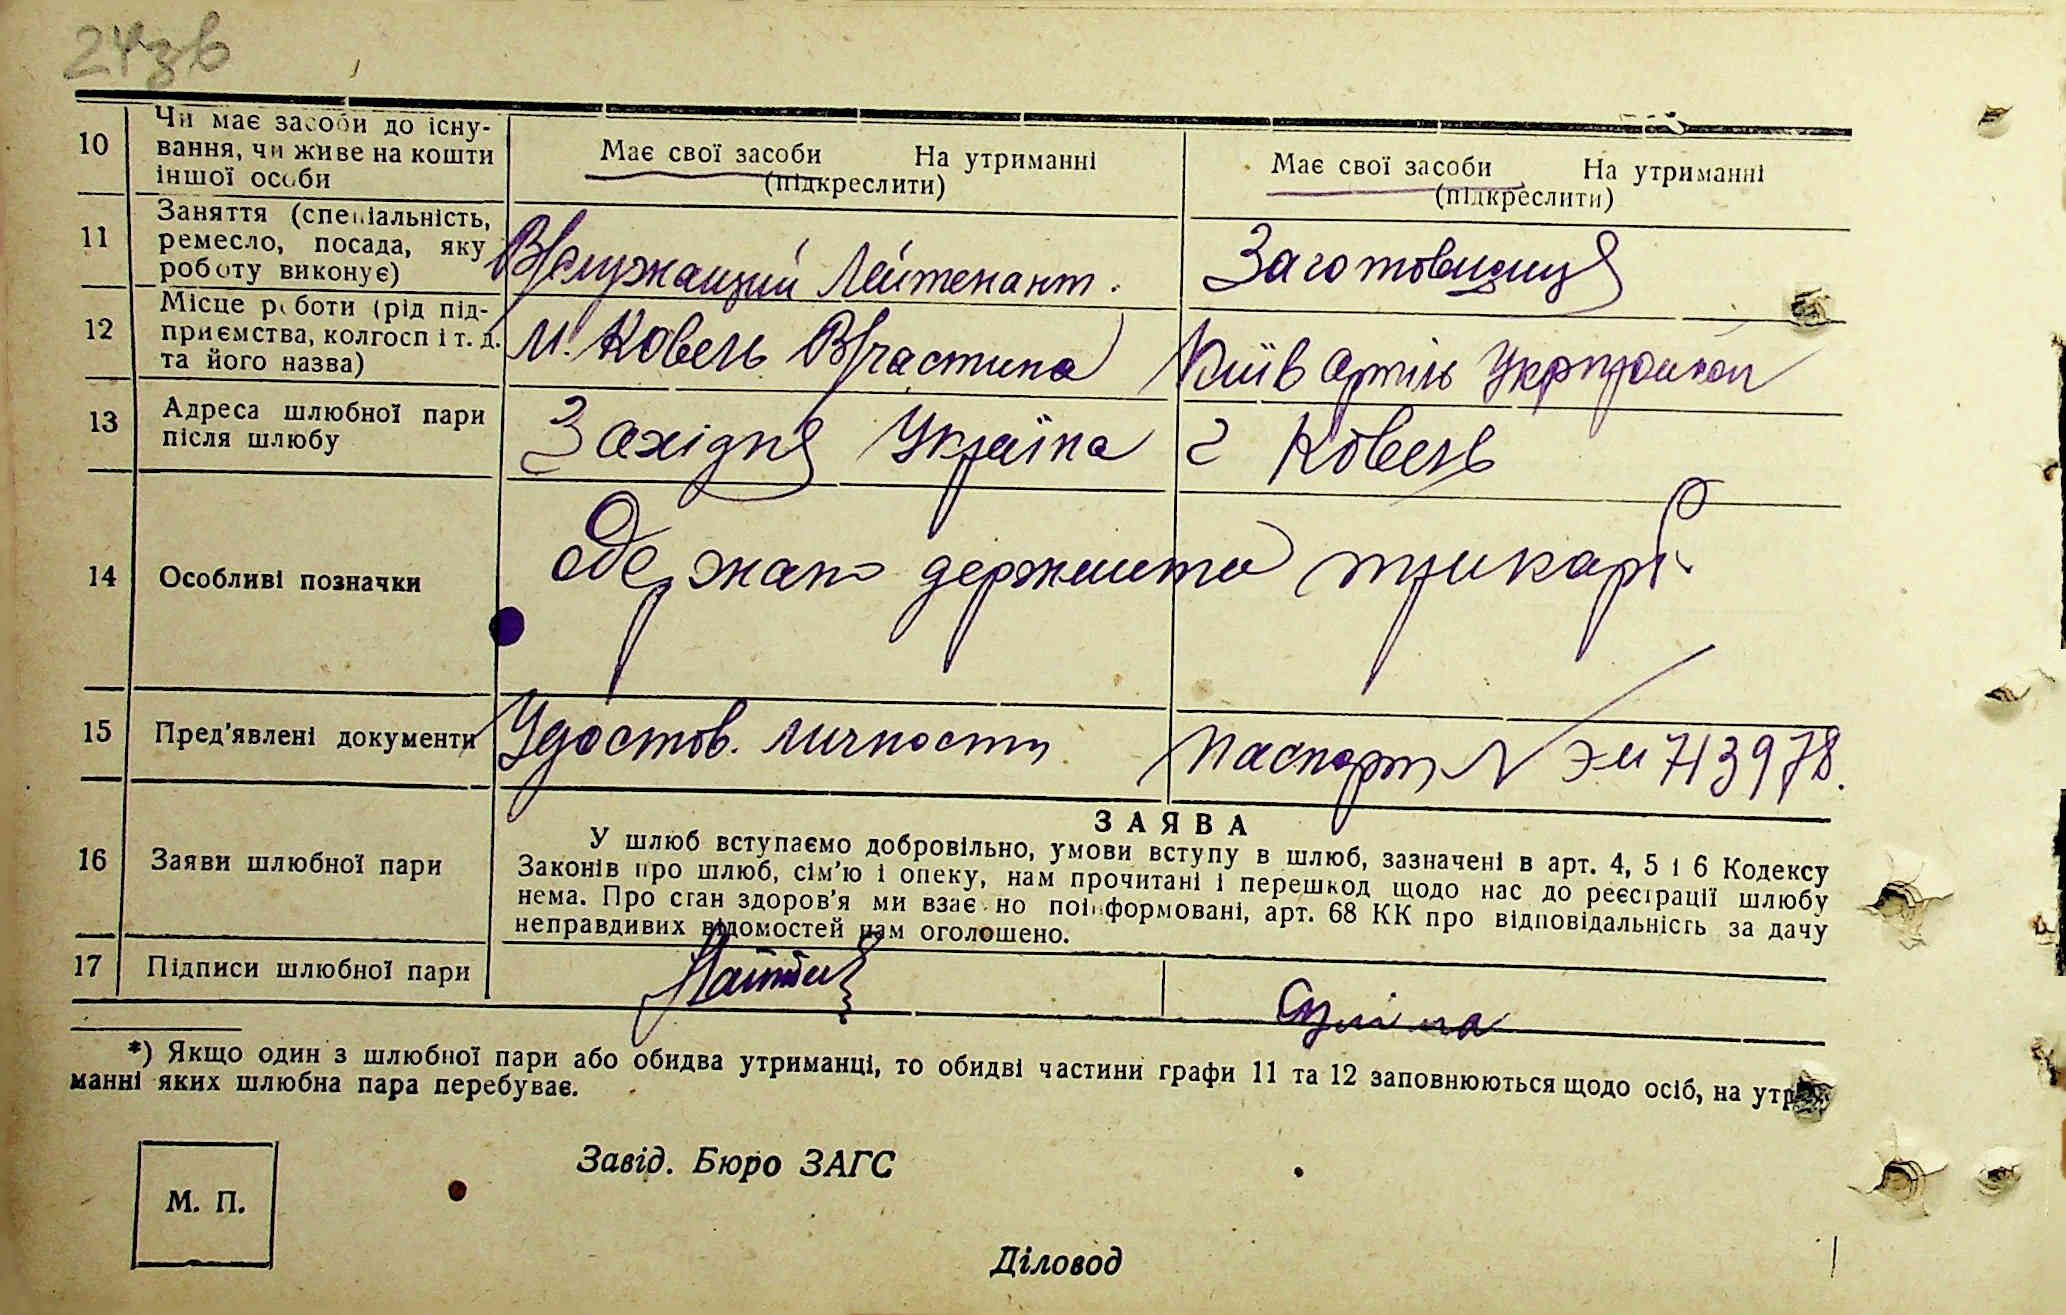 24зв
10
Чи має засоби до існу-
вання, чи живе на кошти
іншої особи
Має свої засоби На утриманні
(підкреслити)
Має свої засоби На утриманні
(підкреслити)
11
Заняття (спеціальність,
ремесло, посада, яку
роботу виконує)
В/служащий Лейтенант.
Заготовщиця
12
Місце роботи (рід під-
приємства, колгосп і т. д.
та його назва)
м. Ковель В/частина
Київ артіль
13
Адреса шлюбної пари
після шлюбу
Західня Україна
г Ковель
14
Особливі позначки
Одержано держмита три карб.
15
Пред'явлені документи
Удостов. личности
Паспорт N ЭМ 713978.
16
Заяви шлюбної пари
ЗАЯВА
У шлюб вступаємо добровільно, умови вступу в шлюб, зазначені в арт. 4, 5 і 6 Кодексу
Законів про шлюб, сім'ю і опеку, нам прочитані і перешкод щодо нас до реєстрації шлюбу
нема. Про стан здоров'я ми взаємно поінформовані, арт. 68 КК про відповідальність за дачу
неправдивих відомостей нам оголошено.
17
Підписи шлюбної пари
*) Якщо один з шлюбної пари або обидва утриманці, то обидві частини графи 11 та 12 заповнюються щодо осіб, на утри-
манні яких шлюбна пара перебуває.
Завід. Бюро ЗАГС
М. П.
Діловод